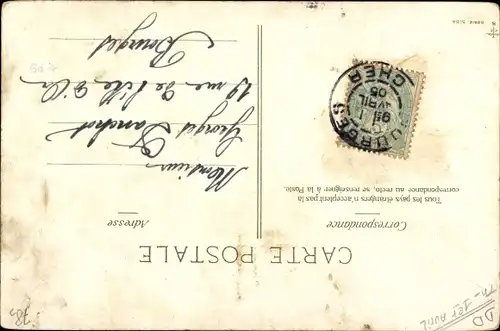 CARTE POSTALE
Correspondance
Tous les pays étrangers n'acceptent pas la
correspondance au recto, se renseigner à la Poste.
Adresse
Monsieur
Georges
19 rue de
Bourges
BOURGES
1
AVRIL
05
CHER
DD
1er Avril